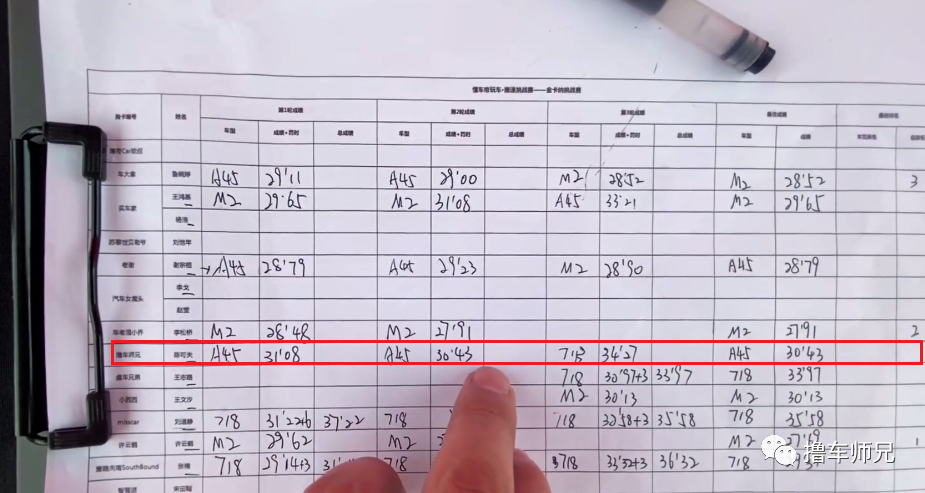 懂车帝玩车·圈速挑战赛——金卡纳挑战赛
抖音账号 姓名 第1轮成绩 第2轮成绩 第3轮成绩 最佳成绩 最终排名
车型 成绩+罚时 总成绩 车型 成绩+罚时 总成绩 车型 成绩+罚时 总成绩 车型 成绩 车型排名
车大拿 A45 29'11 A45 29'00 M2 28'52 M2 28'52 3
买车家 王鸿基 M2 29'65 M2 31'08 A45 33'21 M2 29'65
刘怡年
老谢 谢宗恒 A45 28'79 A45 29'23 M2 28'90 A45 28'79
汽车女魔头 李戈
赵萱
车老湿小乔 李松桥 M2 28'48 M2 27'91 M2 27'91 2
撸车师兄 陈可夫 A45 31'08 A45 30'43 718 34'27 A45 30'43
王志 718 30'97+3 33'97 718 33'97
小西西 王文汐 M2 30'13 M2 30'13
misscar 刘道静 718 31'22+6 37'22 718 718 32'58+3 35'58 718 35'58
许云鹤 许云鹤 M2 29'62 M2 M2 27'69 1
SouthBound 张 718 29'14+3 718 718 33'32+3 36'32 718
撸车师兄